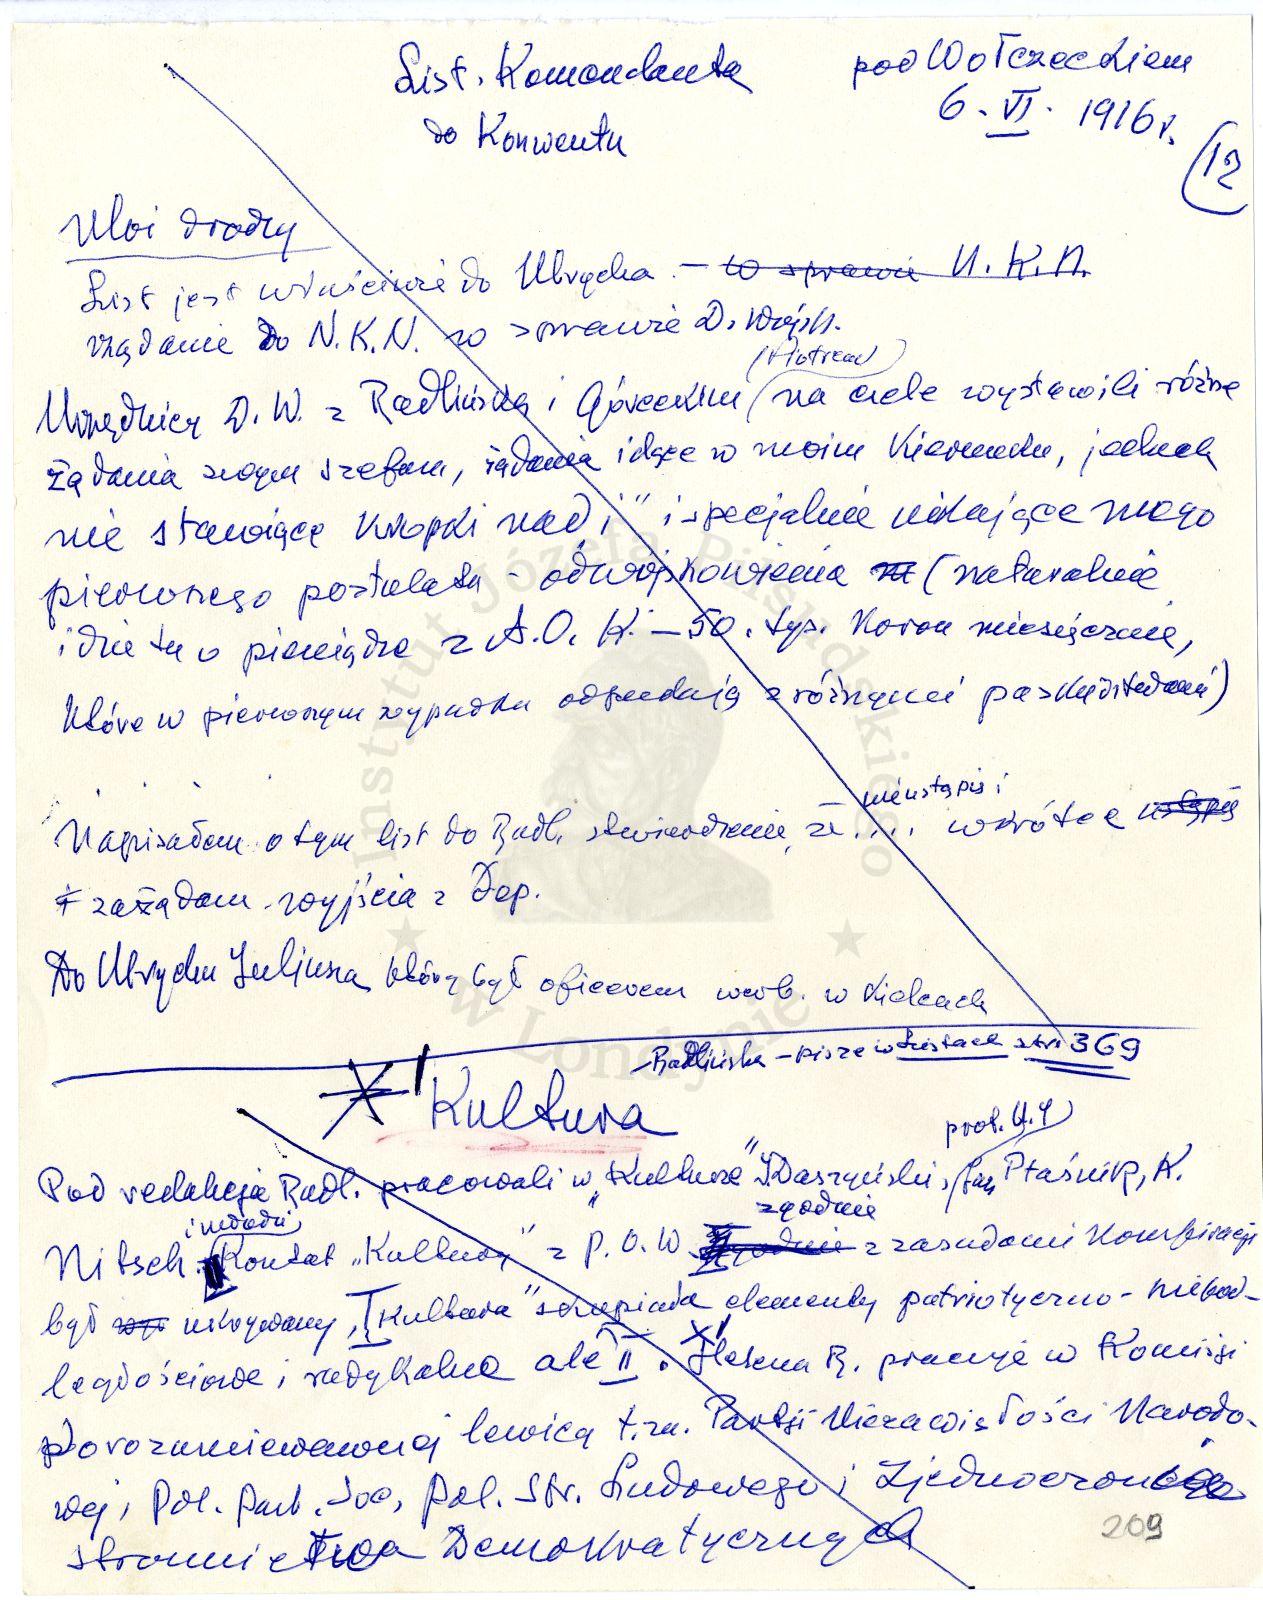 List. Komendanta pod Wołczeckiem
do Konwentu 6. VI. 1916 r.
12
Moi drodzy
List jest właściwie do Ulrycha. – to sprawie N. K. N.
żądanie do N.K.N. w sprawie D. Wojsk.
(Piotrków)
Urzędnicy D. W. z Radlińską i Góreckim na czele wystawili różne
żądania swym szefom, żądania idące w moim kierunku, jednak
nie stawiące kropki nad „i” i specjalnie unikające mego
pierwszego postulatu – odwojskowienia (naturalnie
idzie tu o pieniądze z A.O.K. – 50. tys. Koron miesięcznie,
które w pierwszym wypadku odpadają z różnymi paskudztwami)
nie ustąpię i
Napisałem o tym list do Radl. stwierdzenie, że .... wkrótce ustąpię
i zażądam wyjścia z Dep.
Do Ulrycha Juliusza, który był oficerem werb. w Kielcach
Radlińska – pisze w Listach str. 369
Kultura
prof. U. J
Pod redakcją Radl. pracowali w „Kulturze” I. Daszyński, Jan Ptaśnik, K.
i młodzi zgodnie
Nitsch. Kontat „Kultury” z P. O. W. zgodnie z zasadami Konspiracji
był ukrywany, „Kultura” skupiała elementy patriotyczno – niepod-
ległościowe i radykalne ale II. Helena R. pracuje w Komisji
Porozumiewawczej lewicy t.zn. Partji Niezawisłości Narodo-
wej, Pol. Part. Soc, Pol. Str. Ludowego i Zjednoczonego
stronnictwa Demokratycznych
209
Instytut Józefa Piłsudskiego
w Londynie